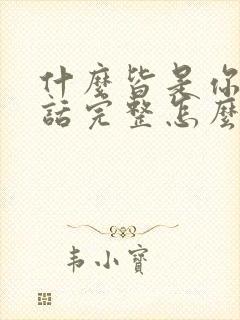 什麼皆是你
話完整怎麼
韦小寳